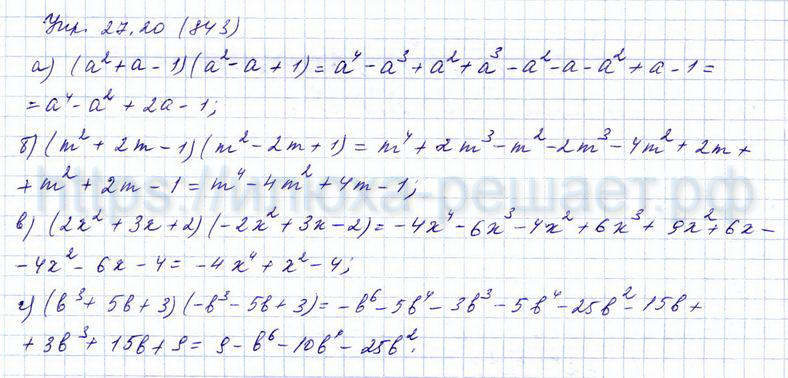 Упр. 27.20 (843)
а) (a² + a - 1)(a² - a + 1) = a⁴ - a³ + a² + a³ - a² - a - a² + a - 1 =
= a⁴ - a² + 2a - 1;
б) (m² + 2m - 1)(m² - 2m + 1) = m⁴ + 2m³ - m² - 2m³ - 4m² + 2m +
+ m² + 2m - 1 = m⁴ - 4m² + 4m - 1;
https://илюха-решает.рф
в) (2x² + 3x + 2)(-2x² + 3x - 2) = -4x⁴ - 6x³ - 4x² + 6x³ + 9x² + 6x -
- 4x² - 6x - 4 = -4x⁴ + x² - 4;
г) (b³ + 5b + 3)(-b³ - 5b + 3) = -b⁶ - 5b⁴ - 3b³ - 5b⁴ - 25b² - 15b +
+ 3b³ + 15b + 9 = 9 - b⁶ - 10b⁴ - 25b².